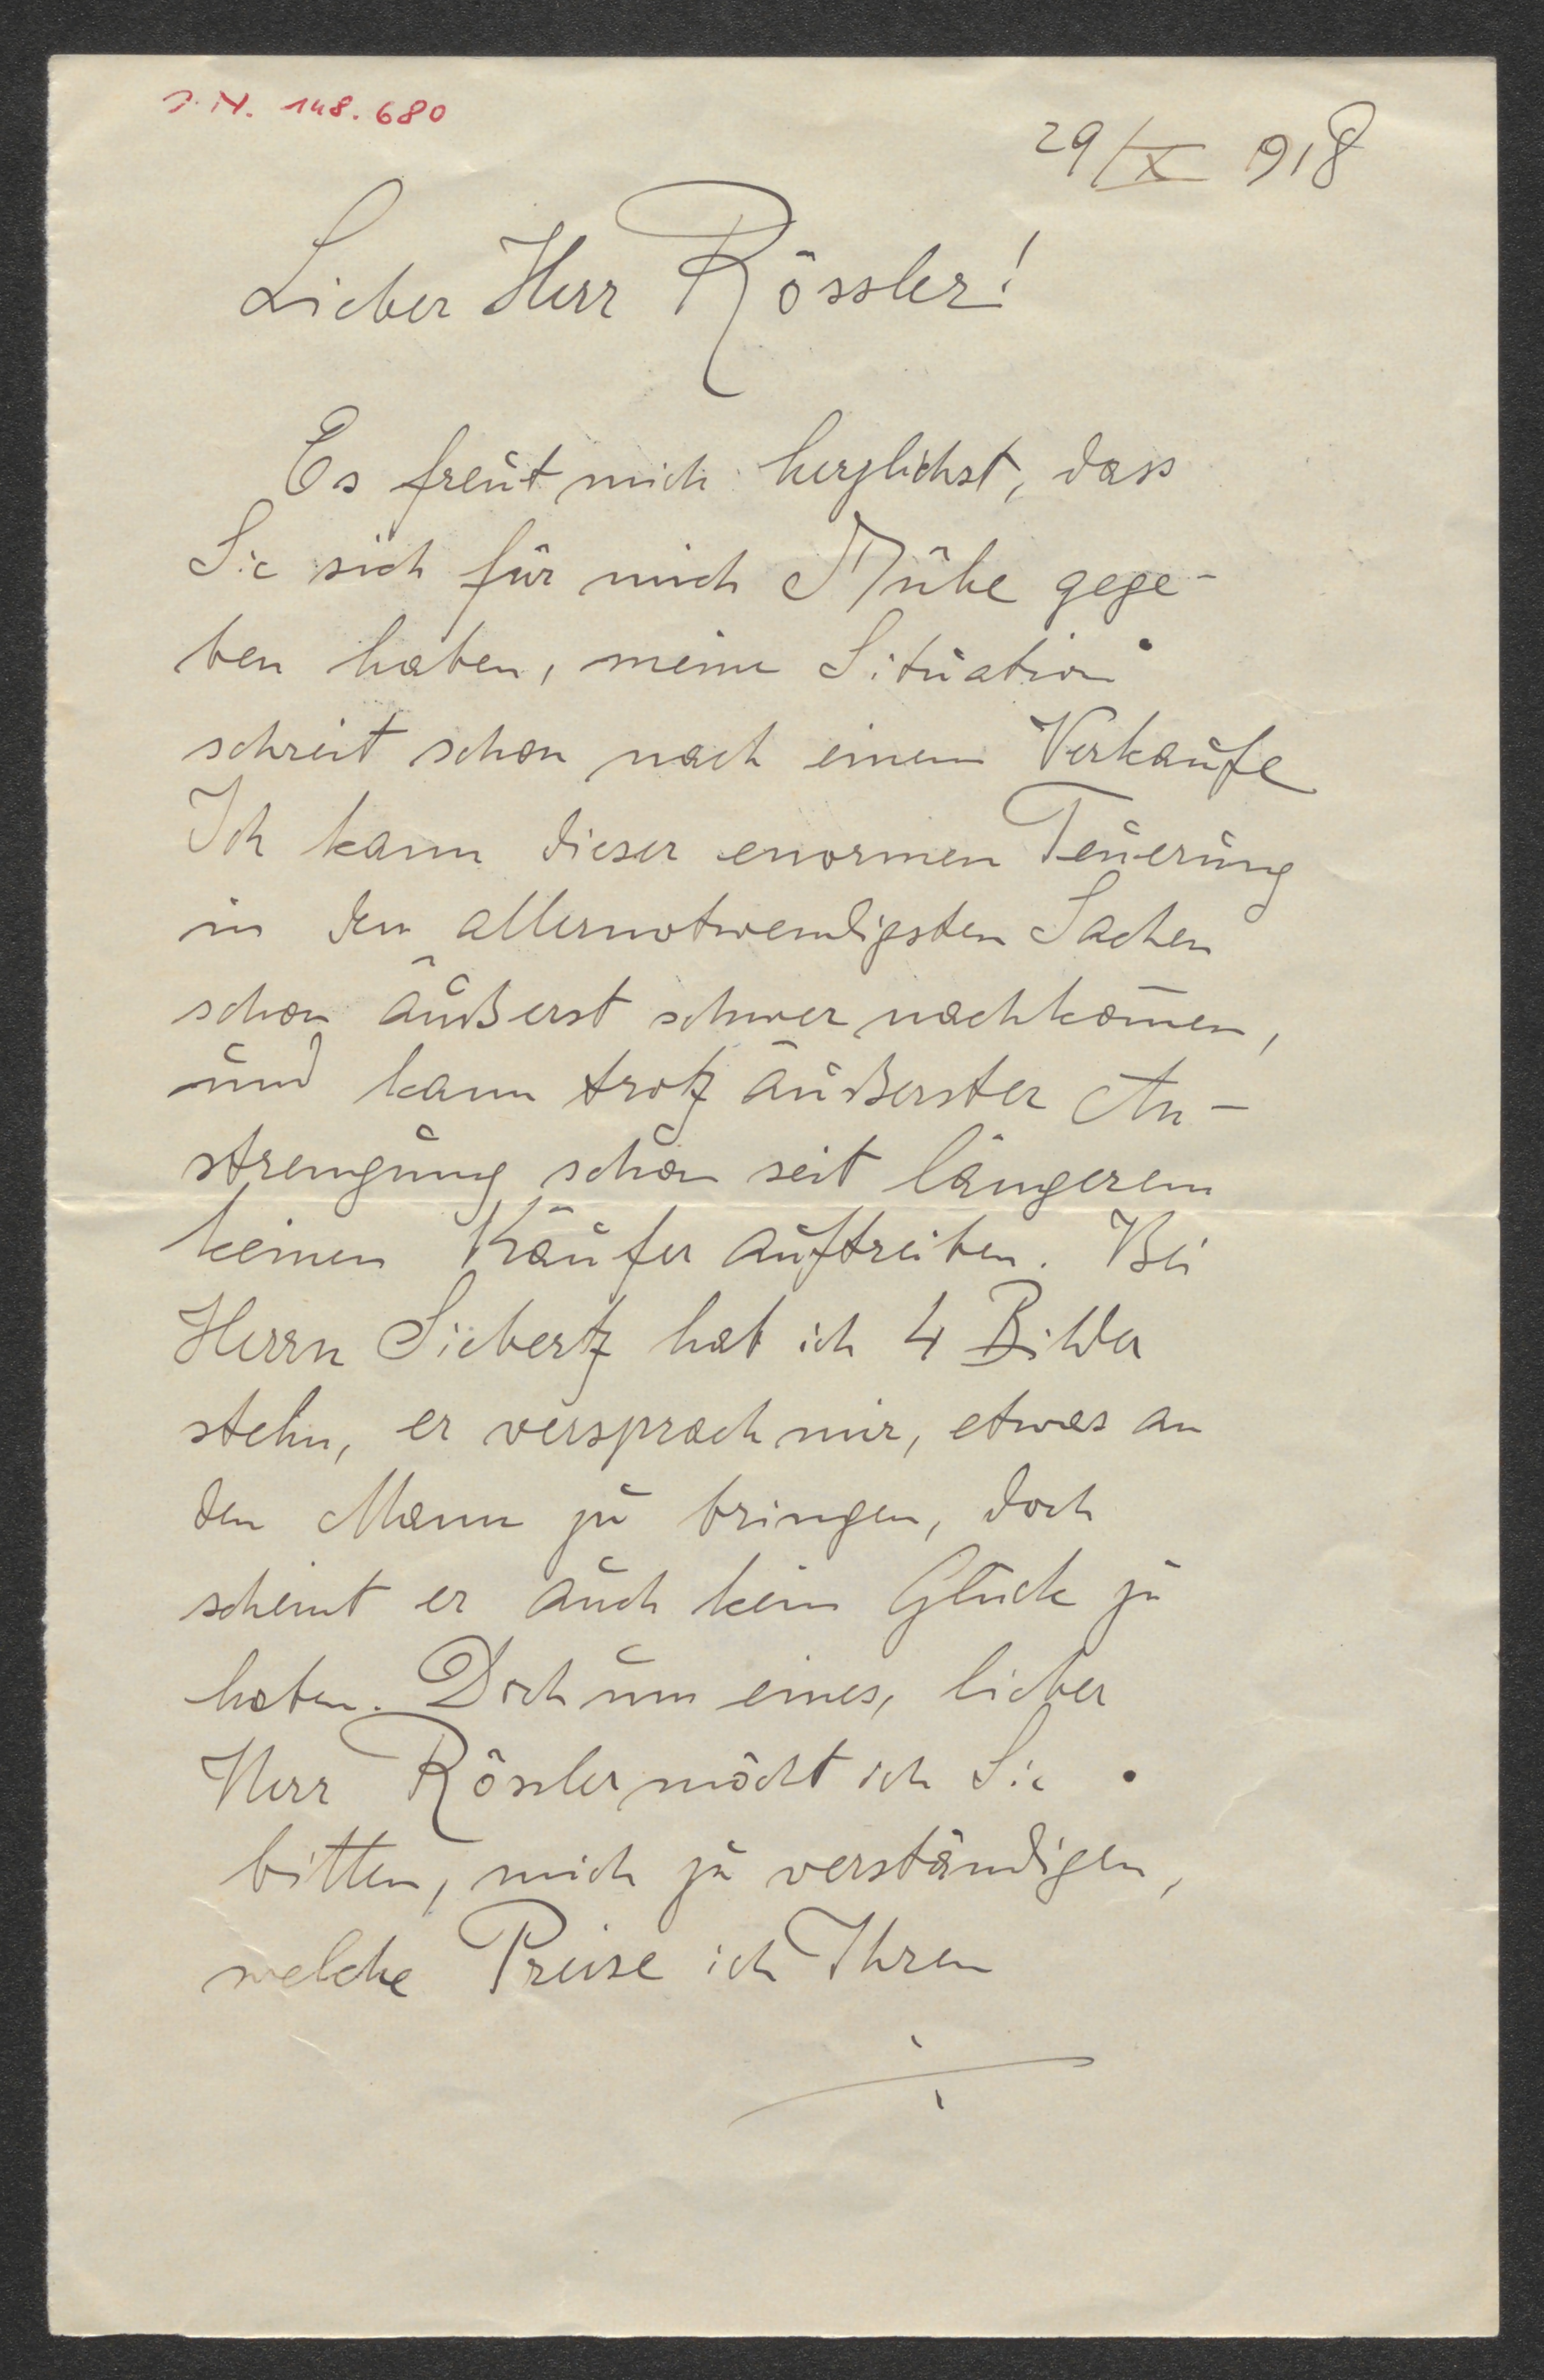 J. N. 148.680
29/X 918
Lieber Herr Rössler!
Es freut mich herzlichst, dass
Sie sich für mich Mühe gege-
ben haben, meine Situation
schreit schon nach einem Verkaufe
Ich kann dieser enormen Teuerung
in den allernotwendigsten Sachen
schon äußerst schwer nachkom̄en,
und kann trotz äußerster An-
strengung schon seit längerem
keinen Käufer auftreiben. Bei
Herrn Siebertz hab ich 4 Bilder
stehn, er versprach mir, etwas an
den Mann zu bringen, doch
scheint er auch kein Glück zu
haben. Doch um eines, lieber
Herr Rössler möcht ich Sie
bitten, mich zu verständigen,
welche Preise ich Ihren